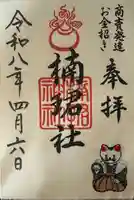 商売発達
お金招き
奉拝
楠珺社
令和八年四月六日